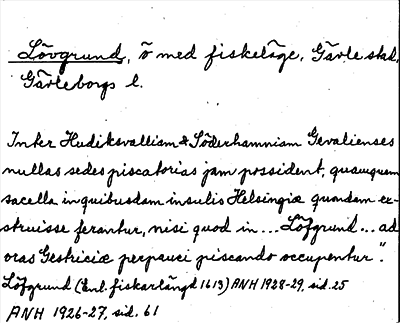 Lövgrund, ö med fiskeläge, Gävle stad,
Gävleborgs l.
Inter Hudiksvalliam & Söderhamniam Gevalienses
nullas sedes piscatorias jam possident, quamquam
sacella in quibusdam insulis Helsingiæ quondam ex-
struisse ferantur, nisi quod in ... Löfgrund ... ad
oras Gestriciæ perpauci piscando occupentur."
Löfgrund (Enl. fiskarlängd 1613) ANH 1928-29, sid. 25
ANH 1926-27, sid. 61